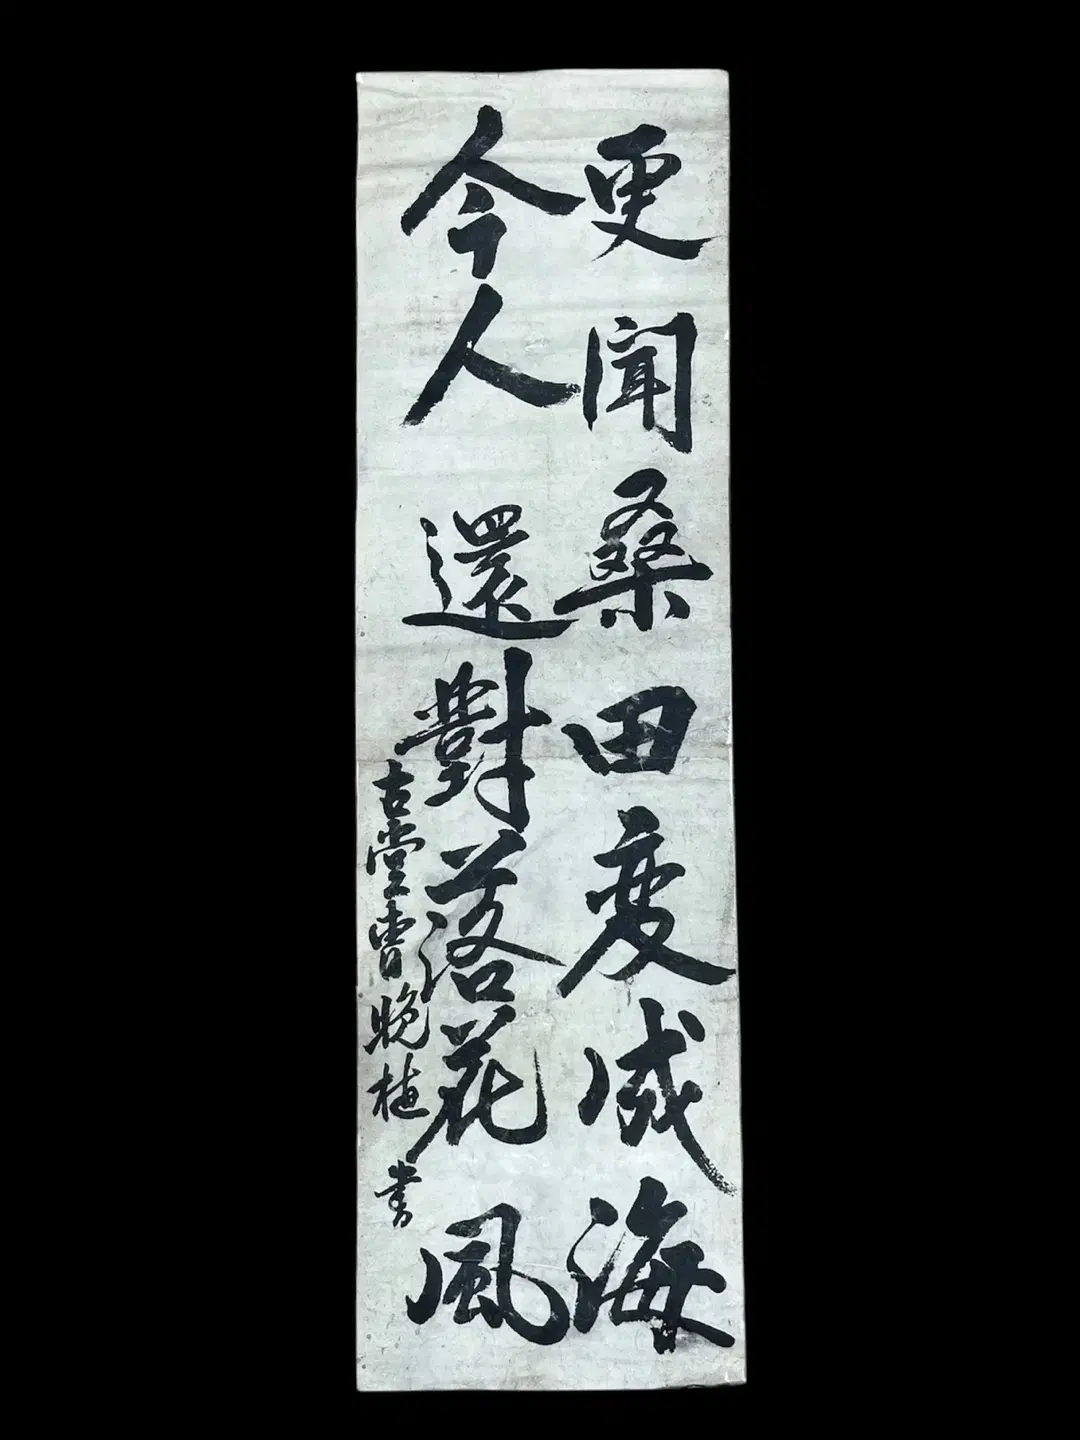 更聞桑田変成海
今人還對落花風
古堂曹晩植書